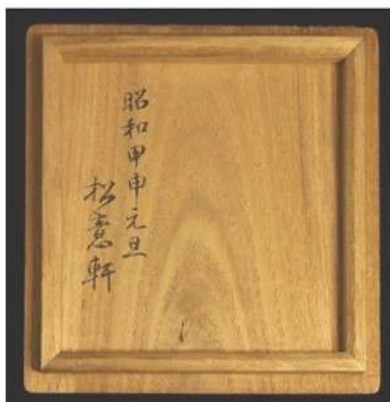 昭和甲申元旦
松意軒